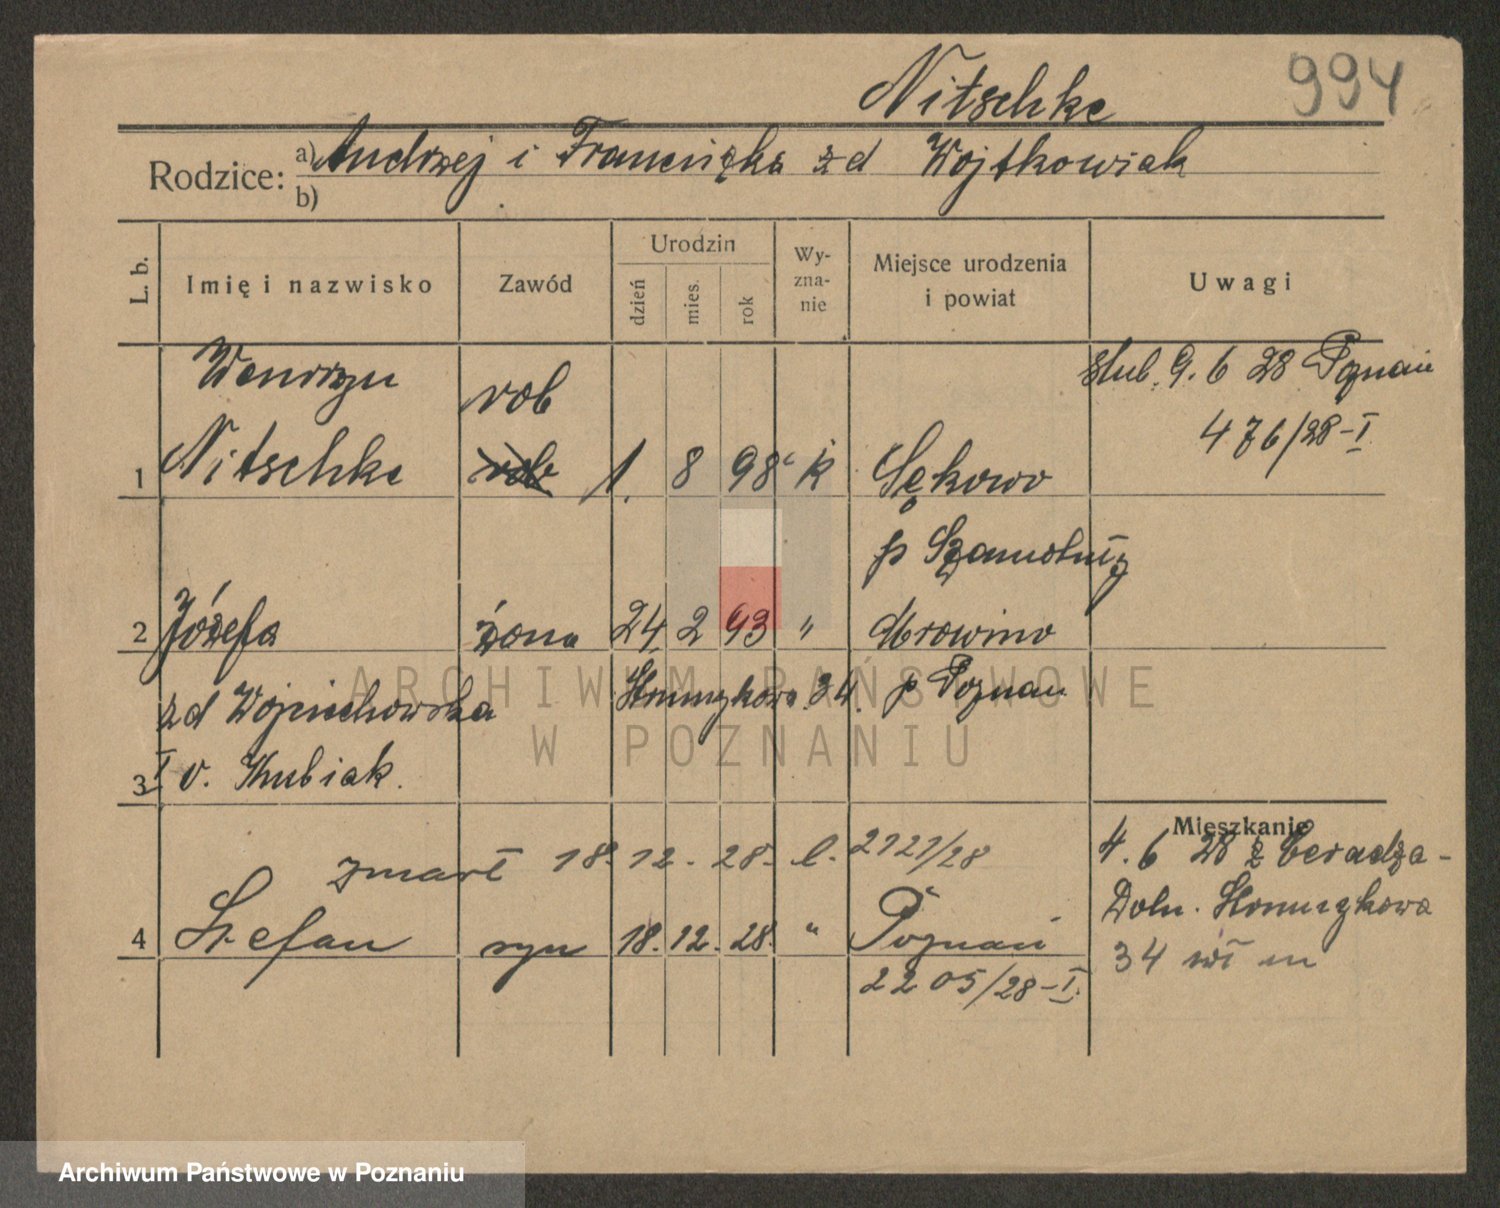 Nitschke
994
Rodzice: a) Andrzej i Franciszka zd Wojtkowiak
b)
L. b.
Imię i nazwisko
Zawód
Urodzin
dzień
mies.
rok
Wy-
zna-
nie
Miejsce urodzenia
i powiat
Uwagi
Wawrzyn
rob
ślub. 9. 6 28 Poznań
476/28-I
1 Nitschke rob 1. 8 98 k Sękowo
p Szamotuły
2 Józefa żona 24 2 93 " Mrowino
zd Wojciechowska
34. p Poznań
3 I v. Kubiak.
Mieszkanie
zmarł 18. 12. 28. l. 2121/28
4. 6 28 z Ceradza-
Doln.
4 Stefan syn 18. 12. 28. " Poznań
34 wł m
2205/28-I.
ARCHIWUM PAŃSTWOWE
W POZNANIU
Archiwum Państwowe w Poznaniu